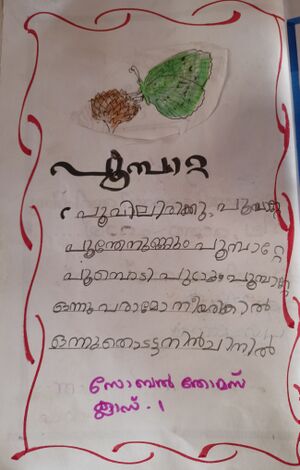 പൂമ്പാറ്റ
പൂവിലിരിക്കും പൂമ്പാറ്റേ
പൂന്തേനുണ്ണും പൂമ്പാറ്റേ
പൂമ്പൊടി പൂശും പൂമ്പാറ്റേ
ഒന്നു പരാമോ നീയരികിൽ
ഒന്നുതൊടട്ടെ നിൻ
സോബൻ തോമസ്
ക്ലാസ്. 1